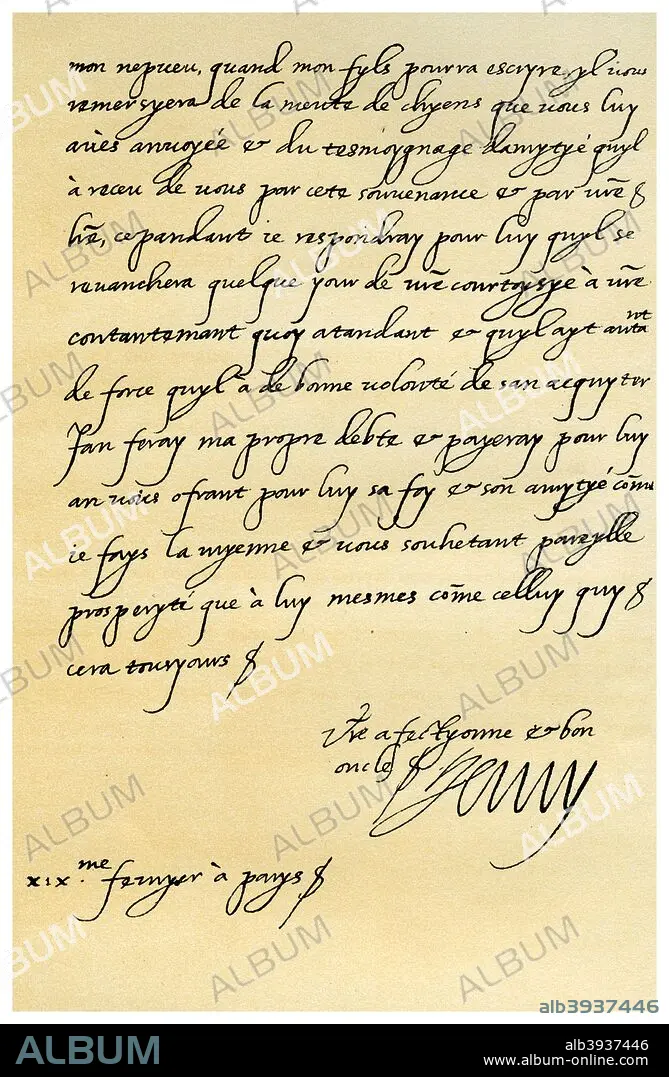 mon nepueu, quand mon fyls pourra escryre, yl vous
remersyera de la meute de chyens que vous luy
aves anvoyée & du tesmoygnage damytyé quyl
à receu de vous par cete souvenance & par vr̃e
lr̃e, cepandant ie respondray pour luy quyl se
revanchera quelque your de vr̃e courtoysye à vr̃e
contantemant quoy atandant & quyl ayt autant
de force quyl à de bonne volonté de san acquyter
Jan feray ma propre debte & payeray pour luy
an vous ofrant pour luy sa foy & son amytyé com̃e
ie fays la myenne & vous souhetant pareylle
prosperyté que à luy mesmes com̃e celluy quy
cera tousyours
Vr̃e afectyonne & bon
oncle Henry
xix.me fevryer à parys
ALBUM
alb3937446
ALBUM
alb3937446
www.album-online.com